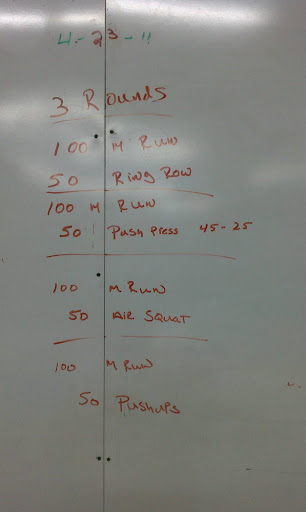 4-23-11
3 Rounds
100 M Run
50 Ring Row
100 M Run
50 Push Press 45-25
100 M Run
50 Air Squat
100 M Run
50 Pushups